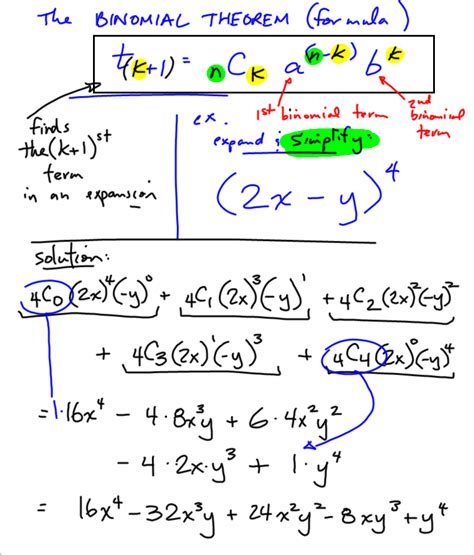 The BINOMIAL THEOREM (formula)
t(k+1) = nCk a^(n-k) b^k
1st binomial term
2nd binomial term
finds
the (k+1)^st
term
in an expansion
ex.
expand & simplify:
(2x - y)^4
solution:
4C0(2x)^4(-y)^0 + 4C1(2x)^3(-y)^1 + 4C2(2x)^2(-y)^2
+ 4C3(2x)^1(-y)^3 + 4C4(2x)^0(-y)^4
= 1·16x^4 - 4·8x^3y + 6·4x^2y^2
- 4·2x·y^3 + 1·y^4
= 16x^4 - 32x^3y + 24x^2y^2 - 8xy^3 + y^4